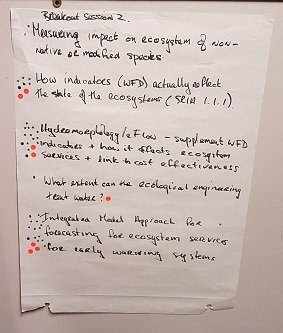 Breakout Session 2.
Measuring impact on ecosystem of non-
native or modified species.
How indicators (WFD) actually reflect
the state of the ecosystems (SRIA 1.1.1)
Hydromorphology/eFlow – supplement WFD
indicators + how it affects ecosystem
services + link to cost effectiveness
What extent can the ecological engineering
treat water?
Integrated Model Approach for
forecasting for ecosystem services
for early warning systems